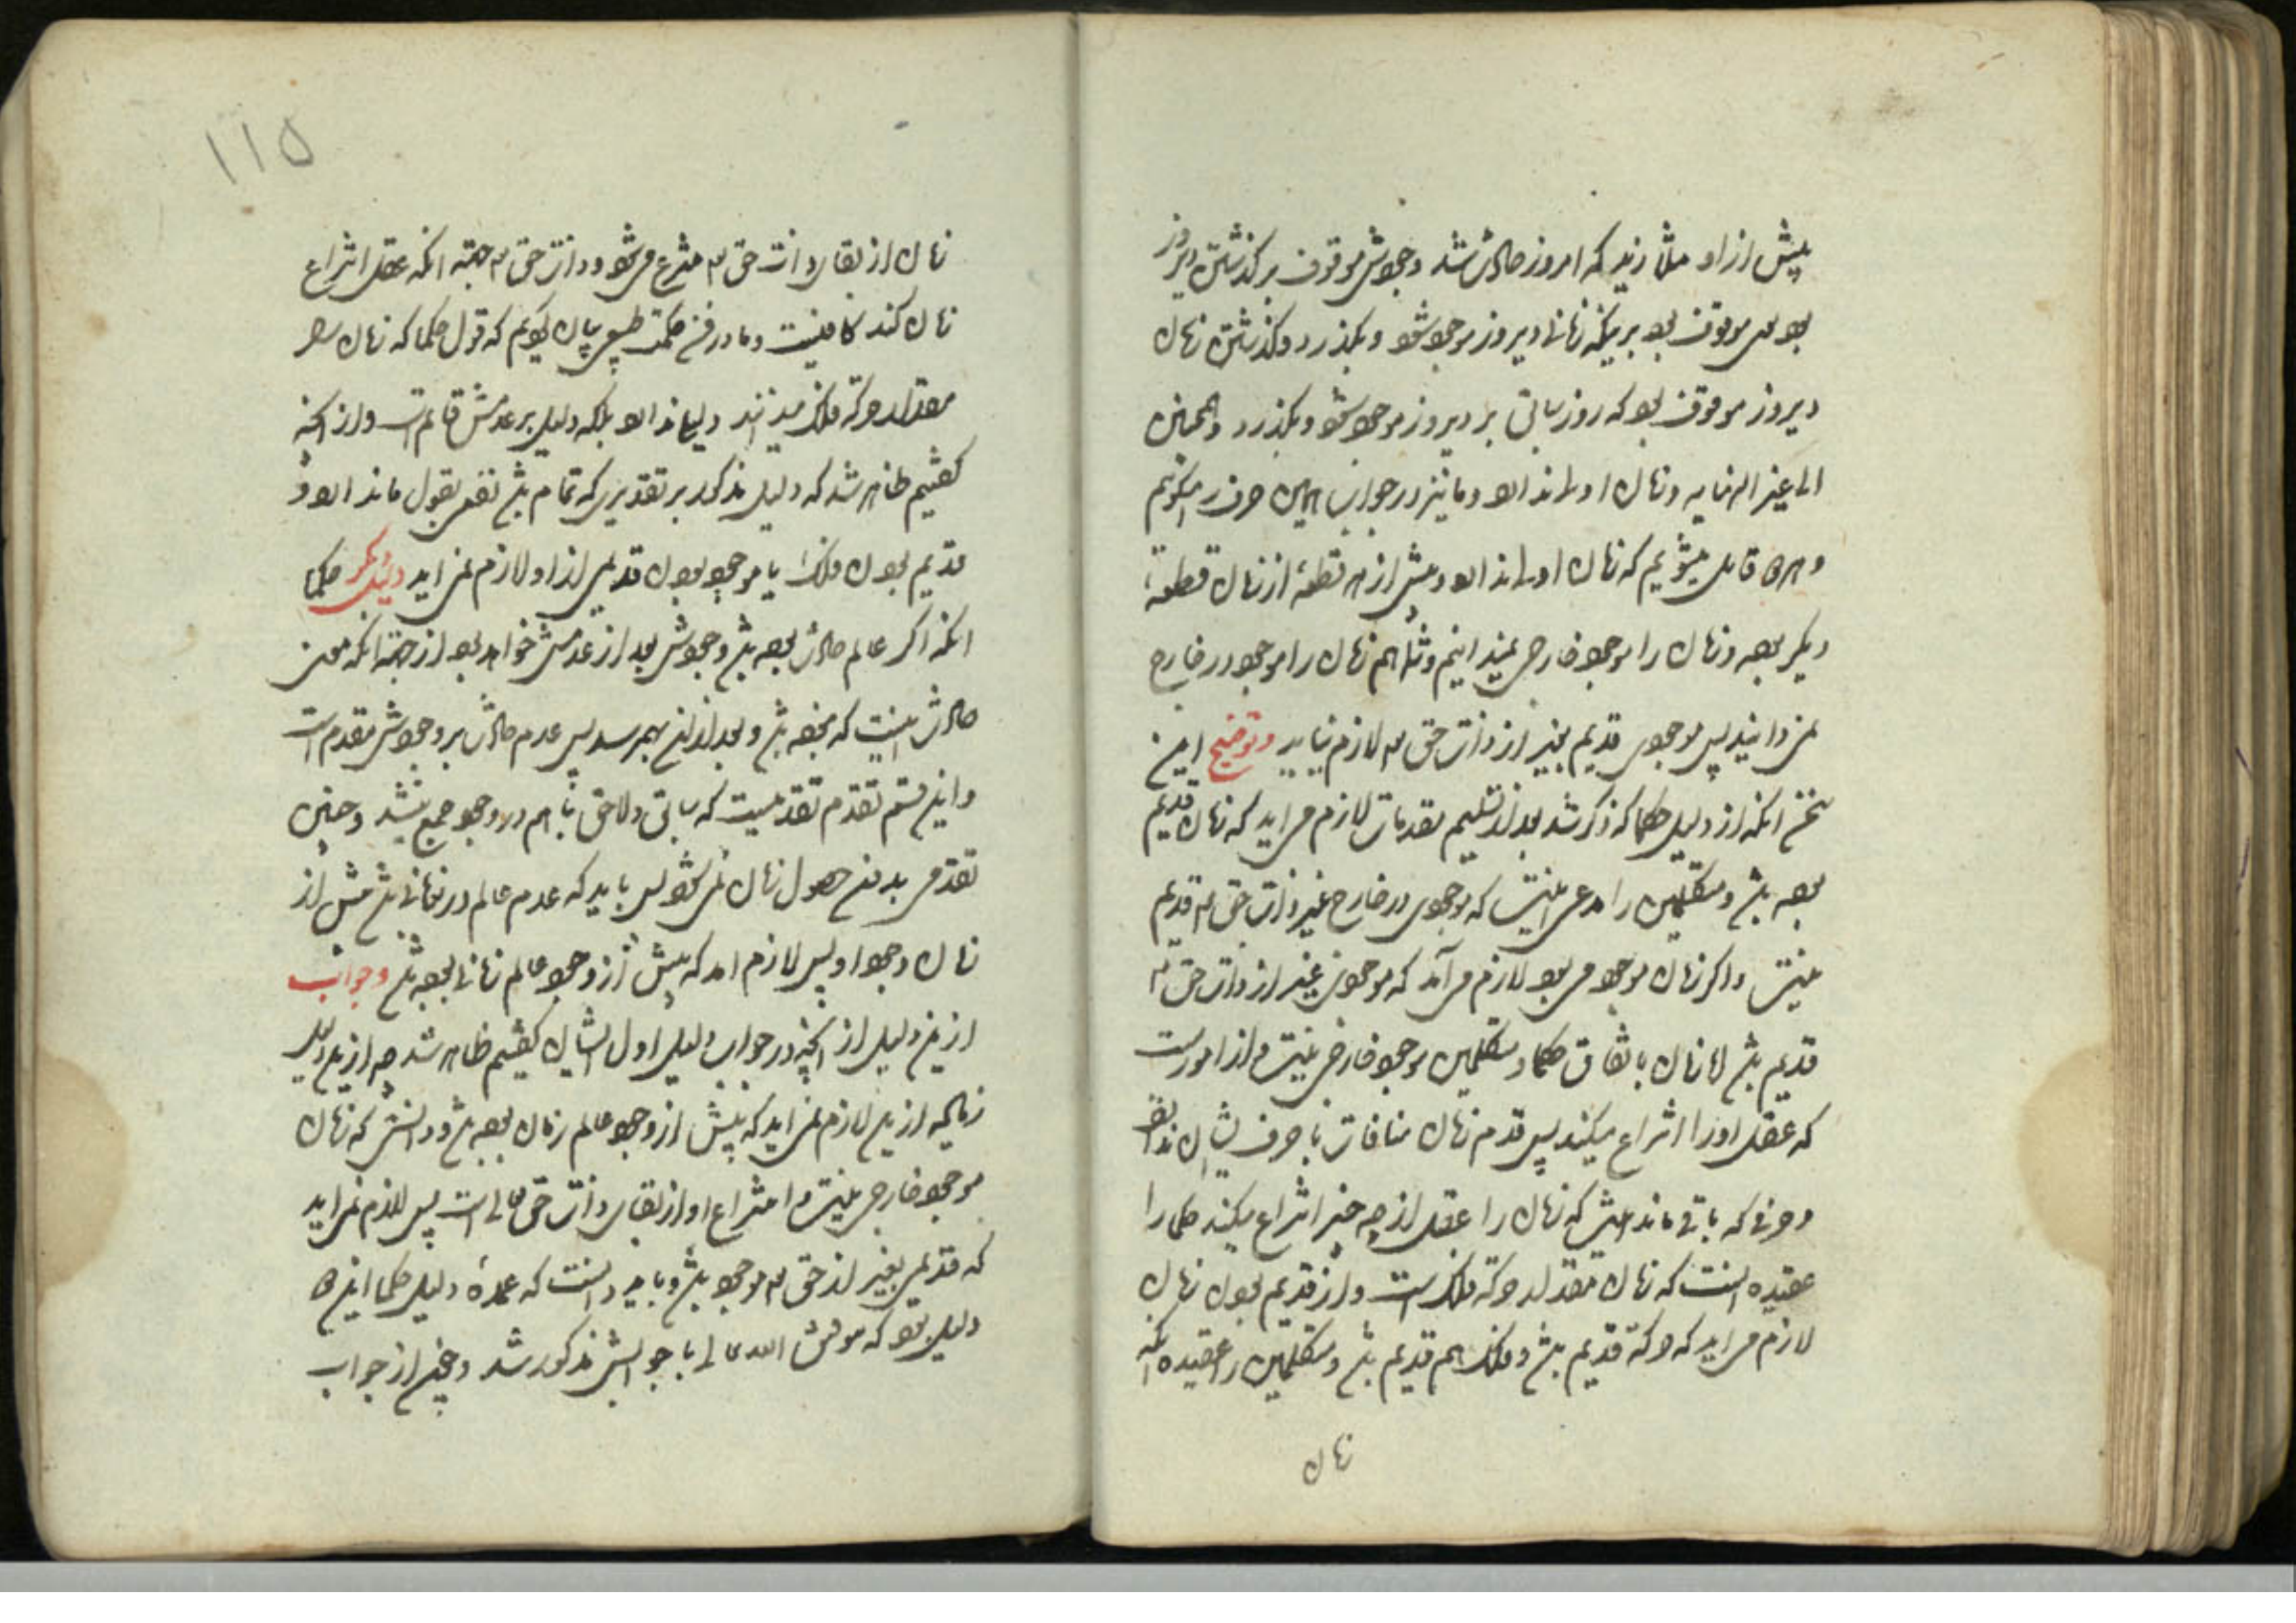 پیش از او مثلا زید که امروز حادث شد وجودش موقوف بر گذشتن دیروز
بود و موقوف بود بر اینکه زمانی دیروز موجود شود و بگذرد و گذشتن زمان
دیروز موقوف بود که روز سابق بر دیروز موجود شود و بگذرد و همچنین
الی غیر النهایه و زمان اولی ندارد و ما نیز در جواب همین حرف را میگوئیم
و قایل میشویم که زمان اولی ندارد و پیش از هر قطعهٔ از زمان قطعهٔ
دیگر بوده و زمان را موجود خارجی نمیدانیم و شما هم زمان را موجود در خارج
نمی دانید پس موجودی قدیم بغیر از ذات حق تع لازم نیاید و توضیح این
سخن آنکه از دلیل حکما که ذکر شد بعد از تسلیم مقدمات لازم می اید که زمان قدیم
بوده باشد و متکلمین را مدعی اینست که موجودی در خارج غیر ذات حق تع قدیم
نیست و اگر زمان موجود می بود لازم می آمد که موجودی غیر از ذات حق تع
قدیم باشد اما زمان باتفاق حکما و متکلمین موجود خارجی نیست و از اموریست
که عقل او را انتزاع میکند پس قدم زمان منافات با حرف ایشان ندارد
و حرفی که باقی ماند اینست که زمان را عقل از چه چیز انتزاع میکند حکما را
عقیده اینست که زمان مقدار حرکة فلک است و از قدیم بودن زمان
لازم می اید که حرکة قدیم باشد و فلک هم قدیم باشد و متکلمین را عقیده آنکه
زمان
۱۱۵
زمان از بقاء ذات حق تع منتزع می شود و ذات حق تع جهته آنکه عقل انتزاع
زمان کند کافیست و ما در فن حکمت طبیعی بیان کنیم که قول حکما که زمان را
مقدار حرکة فلک میدانند دلیلی ندارد بلکه دلیل بر عدمش قائم است و از آنچه
گفتیم ظاهر شد که دلیل مذکور بر تقدیری که تمام باشد نقض بقول ما ندارد و
قدیم بودن فلک یا موجود بودن قدیمی از او لازم نمی اید دلیل دیگر حکما
آنکه اگر عالم حادث بوده باشد وجودش بعد از عدمش خواهد بود از جهة آنکه معنی
حادث اینست که نبوده باشد و بعد از آن بهم رسد پس عدم حادث بر وجودش مقدم است
و این قسم تقدم تقدمیست که سابق و لاحق با هم در وجود جمع نشد و چنین
تقدمی بدون حصول زمان نمی شود پس باید که عدم عالم در زمانی باشد پیش از
زمان وجود او پس لازم امد که پیش از وجود عالم زمانی بوده باشد و جواب
از این دلیل از آنچه در جواب دلیل اول ایشان گفتیم ظاهر شد چه از این دلیل
زیاده از این لازم نمی اید که پیش از وجود عالم زمان بوده باشد و دانستی که زمان
موجود خارجی نیست و انتزاع او از بقاء ذات حق تعالی است پس لازم نمی اید
که قدیمی بغیر از حق تع موجود باشد و باید دانست که عمدهٔ دلیل حکما این
دلیل بود که بتوفیق الله تعالی با جوابش مذکور شد و بعضی از جواب